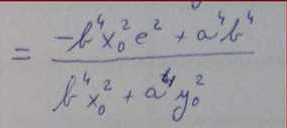 = \frac{-b^4 x_0^2 e^2 + a^4 b^4}{b^4 x_0^2 + a^4 y_0^2}